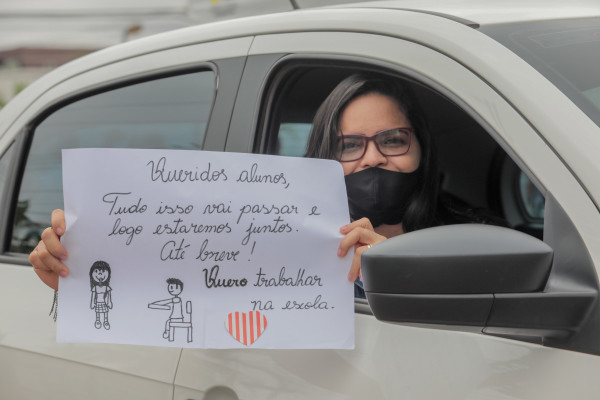 Queridos alunos,
Tudo isso vai passar e
logo estaremos juntos.
Até breve!
Quero trabalhar
na escola.